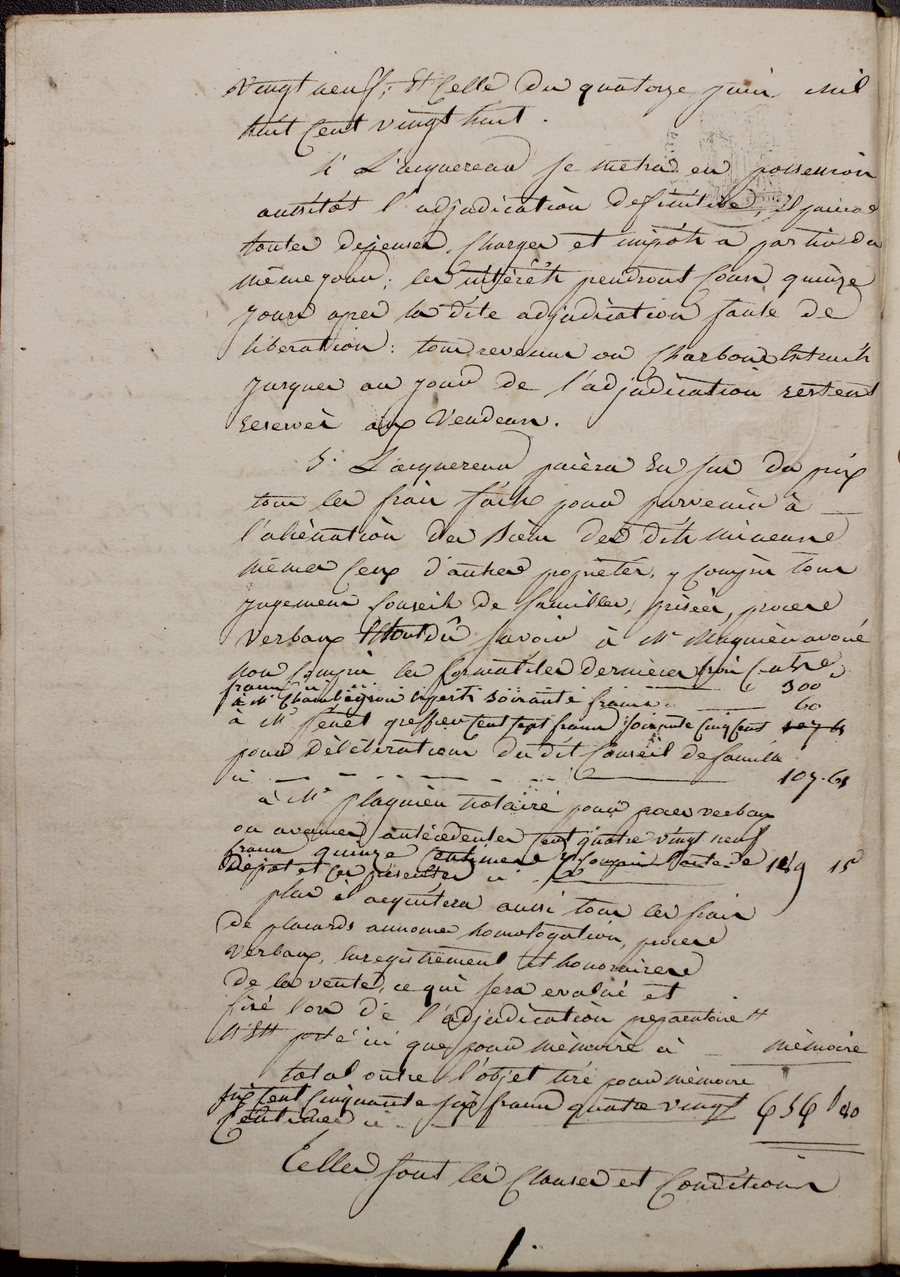 Vingt neuf; Et Celle du quatorze juin mil
huit Cent vingt huit.
4° L'acquereur se metra en possession
aussitôt l'adjudication definitive, il paiera
toutes depenses, Charges et impôts a partir du
même jour; les intérêts prendront Cours quinze
jours apres la dite adjudication faute de
liberation: tous revenus ou Charbons Extraits
jusques au jour de l'adjudication restent
reservés aux Vendeurs.
5° L'acquereur paiera En sus du prix
tous les frais faits pour parvenir à
l'aliènation des Biens des dits mineurs
mêmes Ceux d'autres propriétés, y Compris tous
jugemens Conseils de familles, prisées, procès
Verbaux Savoir à Mr avoué
non Compris les formalités dernieres trois Cents
francs ci 300
à Mr experts soixante francs 60
à Mr greffier Cent sept francs soixante Cinq Cent 107 65
pour Dèlibérations du dit Conseil de famille
ci 107.65
à Mr Plaquien Notaire pour procès verbaux
ou avances antécédentes Cent quatre vingt neuf
francs quinze Centimes y Compris l'acte de
Dépot et ces presentes ci 189 15
plus il acquitera aussi tous les frais
de placards annonces homologation, procès
Verbaux, Enregistrement Et honoraires
de la vente, ce qui sera evalué et
fixé lors de l'adjudication preparatoire Et
N'Est porté ici que pour mémoire ci mèmoire
total outre l'objet tiré pour mémoire
six Cent Cinquante six francs quatre vingt
Centimes ci 656 f 80
Telles sont les Clauses et Conditions